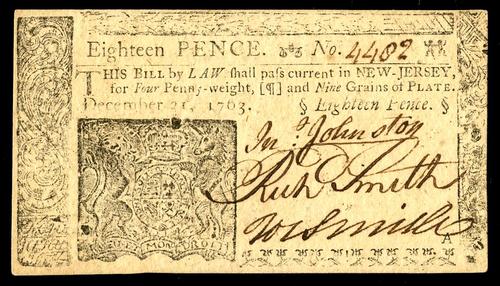 Eighteen PENCE. No. 4482
THIS BILL by LAW shall pass current in NEW-JERSEY,
for Four Penny-weight, [¶] and Nine Grains of PLATE.
December 31, 1763. § Eighteen Pence. §
Jnº Johnston
Rich Smith
W Smith
MON DROIT
A